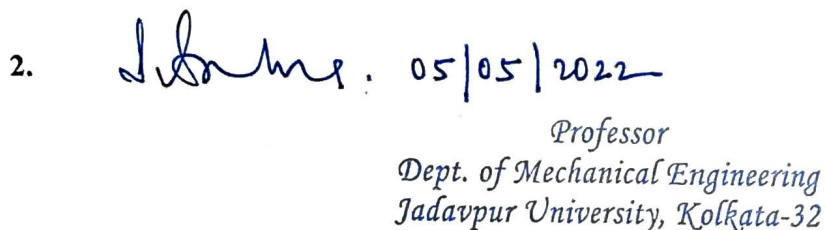 2. 05/05/2022
Professor
Dept. of Mechanical Engineering
Jadavpur University, Kolkata-32